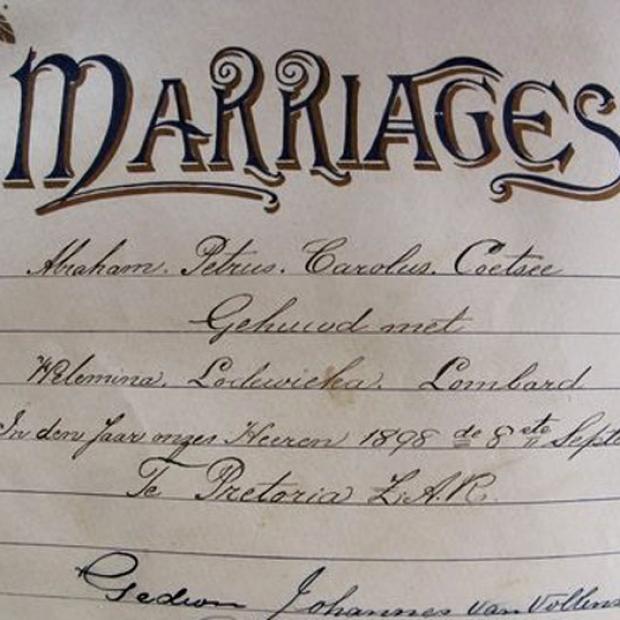 MARRIAGES
Abraham. Petrus. Carolus. Coetsee
Gehuwd met
Welemina. Lodewicka. Lombard
In den Jaar onzes Heeren 1898 de 8ste Septe
Te Pretoria Z.A.R.
Gedion Johannes van Vollens